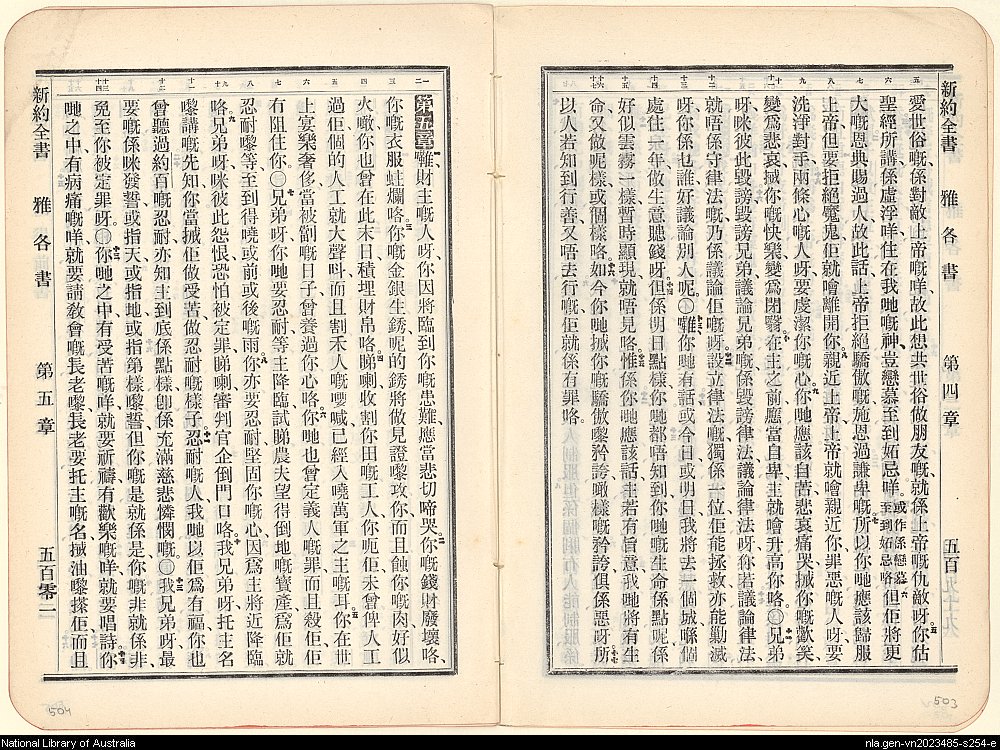 新約全書 雅各書 第四章 五百
愛世俗嘅、係對敵上帝嘅咩、故此想共世俗做朋友嘅、就係上帝嘅仇敵呀、你估
聖經所講係虛浮咩、住在我哋嘅神、豈戀慕至到妬忌咩、或作係戀慕至到妬忌咯但佢將更
大嘅恩典賜過人、故此話、上帝拒絕驕傲嘅、施恩過謙卑嘅、所以你哋應該歸服
上帝、但要拒絕魔鬼、佢就噲離開你、親近上帝、上帝就噲親近你、罪惡嘅人呀、要
洗淨對手、兩條心嘅人呀、要虔潔你嘅心、你哋應該自苦悲哀痛哭、搣你嘅歡笑
變爲悲哀、搣你嘅快樂變爲閉翳、在主之前應當自卑、主就噲升高你咯、〇兄弟
呀、咪彼此毀謗、毀謗兄弟議論兄弟嘅、係毀謗律法、議論律法呀、你若議論律法、
就唔係守律法嘅、乃係議論佢嘅呀、設立律法嘅、獨係一位、佢能拯救、亦能勦滅
呀、你係乜誰、好議論別人呢、〇囉、你哋有話、或今日或明日、我將去一個城、喺個
處住一年、做生意賺錢呀、但係明日點樣、你哋都唔知到、你哋嘅生命係點呢、係
好似雲霧一樣、暫時顯現、就唔見咯、惟係你哋應該話、主若有旨意、我哋將有生
命、又做呢樣、或個樣咯、如今你哋搣你驕傲嚟矜誇、噉樣嘅矜誇、俱係惡呀、所
以人若知到行善、又唔去行嘅、佢就係有罪咯、
新約全書 雅各書 第五章 五百零二
第五章囉、財主嘅人呀、你因將臨到你嘅患難、應當悲切啼哭、你嘅錢財廢壞咯、
你嘅衣服蛀爛咯、你嘅金銀生銹、呢的銹將做見證嚟攻你、而且蝕你嘅肉好似
火噉、你也曾在此末日積埋財帛咯、睇喇、收割你田嘅工人、你呃佢未曾俾人工
過佢、個的人工就大聲呌、而且割禾人嘅嘜喊、已經入曉萬軍之主嘅耳、你在世
上宴樂奢侈、當被劏嘅日子、曾養過你心咯、你哋也曾定義人嘅罪、而且殺佢、佢
有阻住你、〇兄弟呀、你哋要忍耐等主降臨、試睇農夫望得倒地嘅寶產、爲佢就
忍耐嚟等、至到得曉、或前或後嘅雨、你亦要忍耐、堅固你嘅心、因爲主將近降臨
咯、兄弟呀、咪彼此怨恨、恐怕被定罪、睇喇、審判官企倒門口咯、我兄弟呀、托主名
嚟講嘅先知、你當搣佢做受苦做忍耐嘅樣子、忍耐嘅人、我哋以佢爲有福、你也
曾聽過約百嘅忍耐、亦知主到底係點樣、卽係充滿慈悲憐憫嘅、〇我兄弟呀、最
要嘅係咪發誓、或指天、或指地、或指第樣嚟誓、但你嘅是就係是、你嘅非就係非、
免至你被定罪呀、〇你哋之中有受苦嘅咩、就要祈禱、有歡樂嘅咩、就要唱詩、你
哋之中有病痛嘅咩、就要請教會嘅長老嚟、長老要托主嘅名、搣油嚟搽佢、而且
504
503
National Library of Australia
nla.gen-vn2023485-s254-e